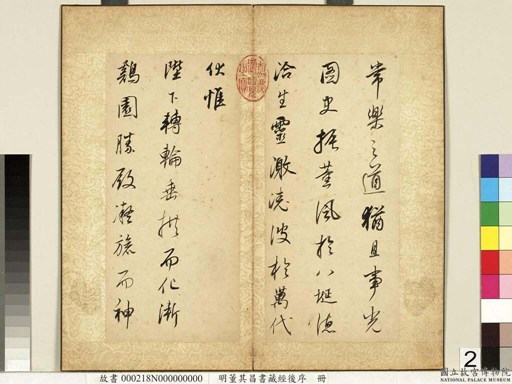 常樂之道猶且事光
圖史振薰風於八埏德
洽生靈激澆波於萬代
伏惟
陛下轉輪垂拱而化漸
鷄園勝殿凝旒而神
2
國立故宮博物院
NATIONAL PALACE MUSEUM
故書 000218N000000000 明董其昌書藏經後序 冊